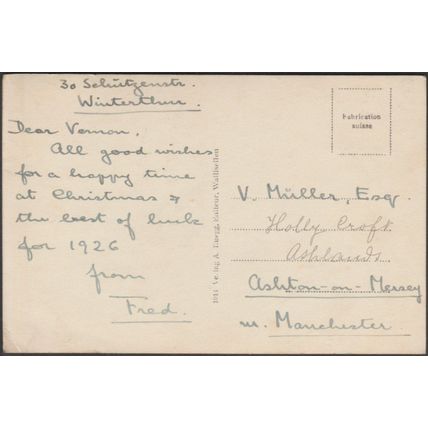 30 Schützenstr.
Winterthur.
Dear Vernon,
All good wishes
for a happy time
at Christmas &
the best of luck
for 1926
from
Fred.
Fabrication
suisse
V. Müller, Esq.
Holly Croft
Ashlands.
Ashton-on-Mersey
nr. Manchester